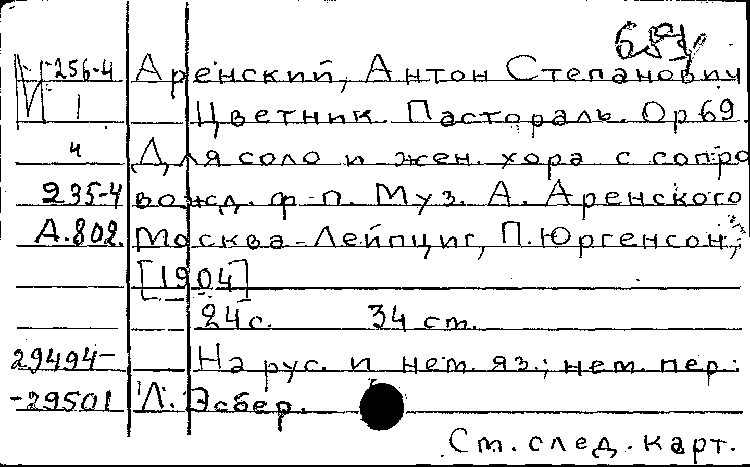 256-4 Аренский, Антон Степанович
1 Цветник. Пастораль. Ор 69.
4 Для соло и жен. хора с сопро
235-4 вожд. ф-п. Муз. А. Аренского
А.802. Москва-Лейпциг, П. Юргенсон,
[1904]
24 с. 34 ст.
29494- На рус. и нем. яз.; нем. пер.
-29501 Л. Эсбер.
Ст. след. карт.